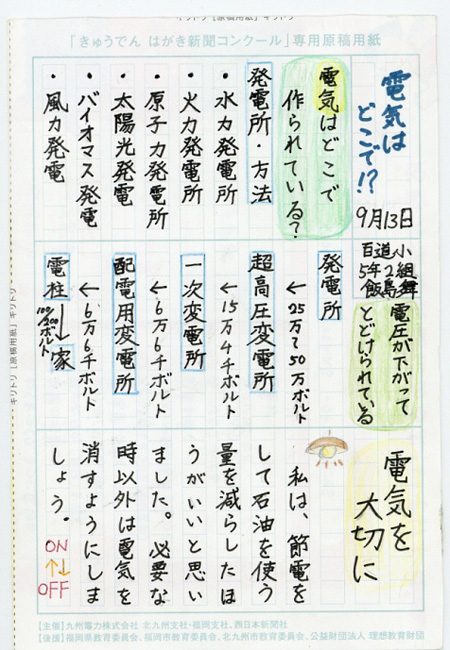 「きゅうでん はがき新聞コンクール」専用原稿用紙
電気は
どこで!?
9月13日
百道小
5年2組
飯島舞
電気はどこで
作られている?
発電所・方法
・水力発電所
・火力発電所
・原子力発電所
・太陽光発電
・バイオマス発電
・風力発電
電圧が下がって
とどけられている
発電所
↓25万~50万ボルト
超高圧変電所
↓15万4千ボルト
一次変電所
↓6万6千ボルト
配電用変電所
↓6万6千ボルト
電柱→家
100/200ボルト
電気を
大切に
私は、節電を
して石油を使う
量を減らしたほ
うがいいと思い
ました。必要な
時以外は電気を
消すようにしま
しょう。
ON
↑↓
OFF
【主催】九州電力株式会社 北九州支社・福岡支社、西日本新聞社
【後援】福岡県教育委員会、福岡市教育委員会、北九州市教育委員会、公益財団法人 理想教育財団